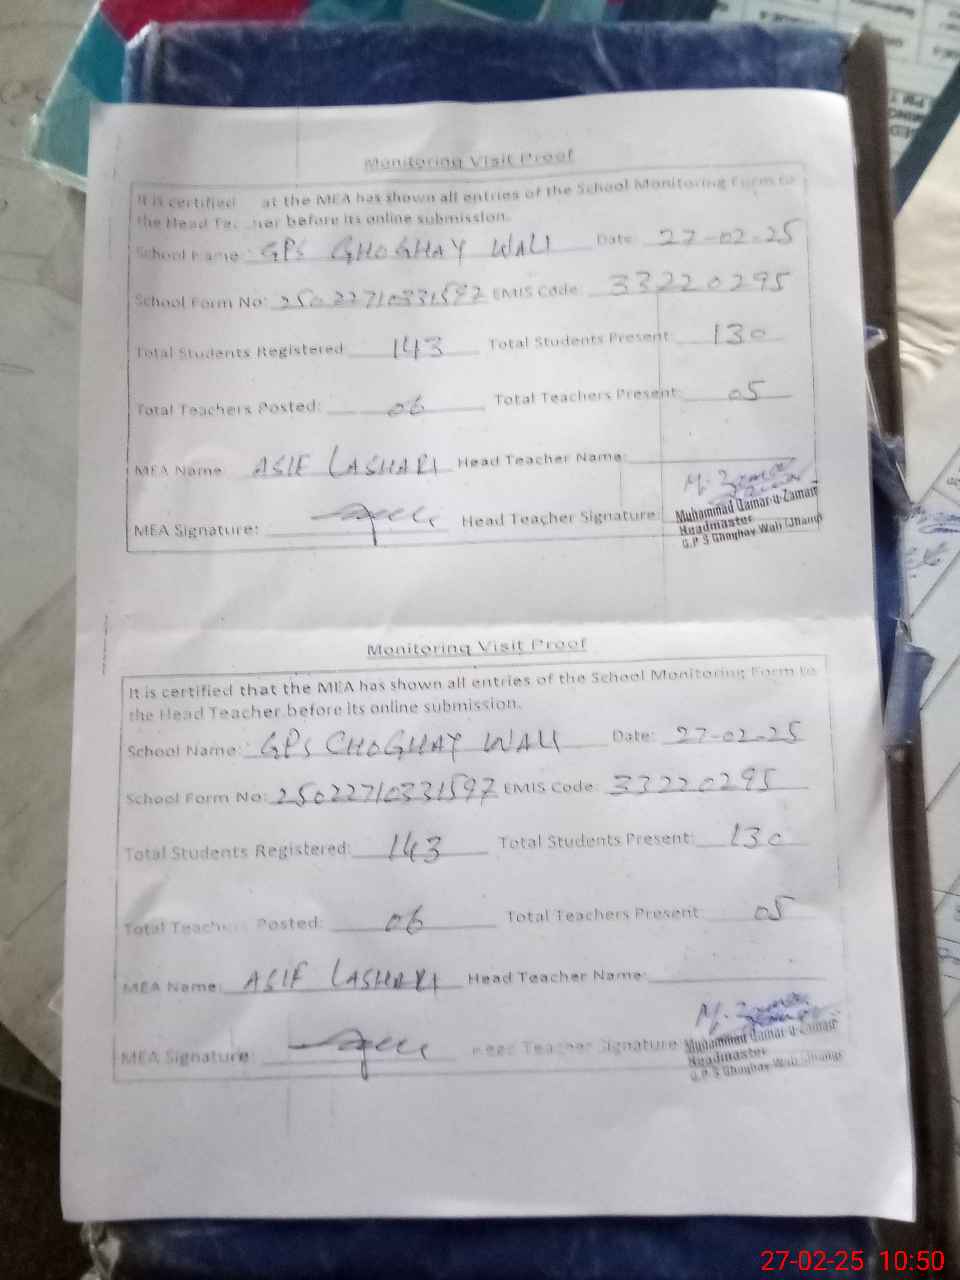 Monitoring Visit Proof
It is certified at the MEA has shown all entries of the School Monitoring Form to
the Head Teacher before its online submission.
School Name: GPS GHOGHAY WALI Date: 27-02-25
School Form No: 25022710331597 EMIS Code: 33220295
Total Students Registered: 143 Total Students Present: 130
Total Teachers Posted: 06 Total Teachers Present: 05
MEA Name: ASIF LASHARI Head Teacher Name:
MEA Signature: Head Teacher Signature:
Muhammad Qamar-u-Zaman
Headmaster
G.P S Ghoghay Wali (Jhang)
Monitoring Visit Proof
It is certified that the MEA has shown all entries of the School Monitoring Form to
the Head Teacher before its online submission.
School Name: GPS GHOGHAY WALI Date: 27-02-25
School Form No: 25022710331597 EMIS Code: 33220295
Total Students Registered: 143 Total Students Present: 130
Total Teachers Posted: 06 Total Teachers Present 05
MEA Name: ASIF LASHARI Head Teacher Name:
MEA Signature: Head Teacher Signature
Muhammad Qamar-u-Zaman
Headmaster
G.P S Ghoghay Wali (Jhang)
27-02-25 10:50